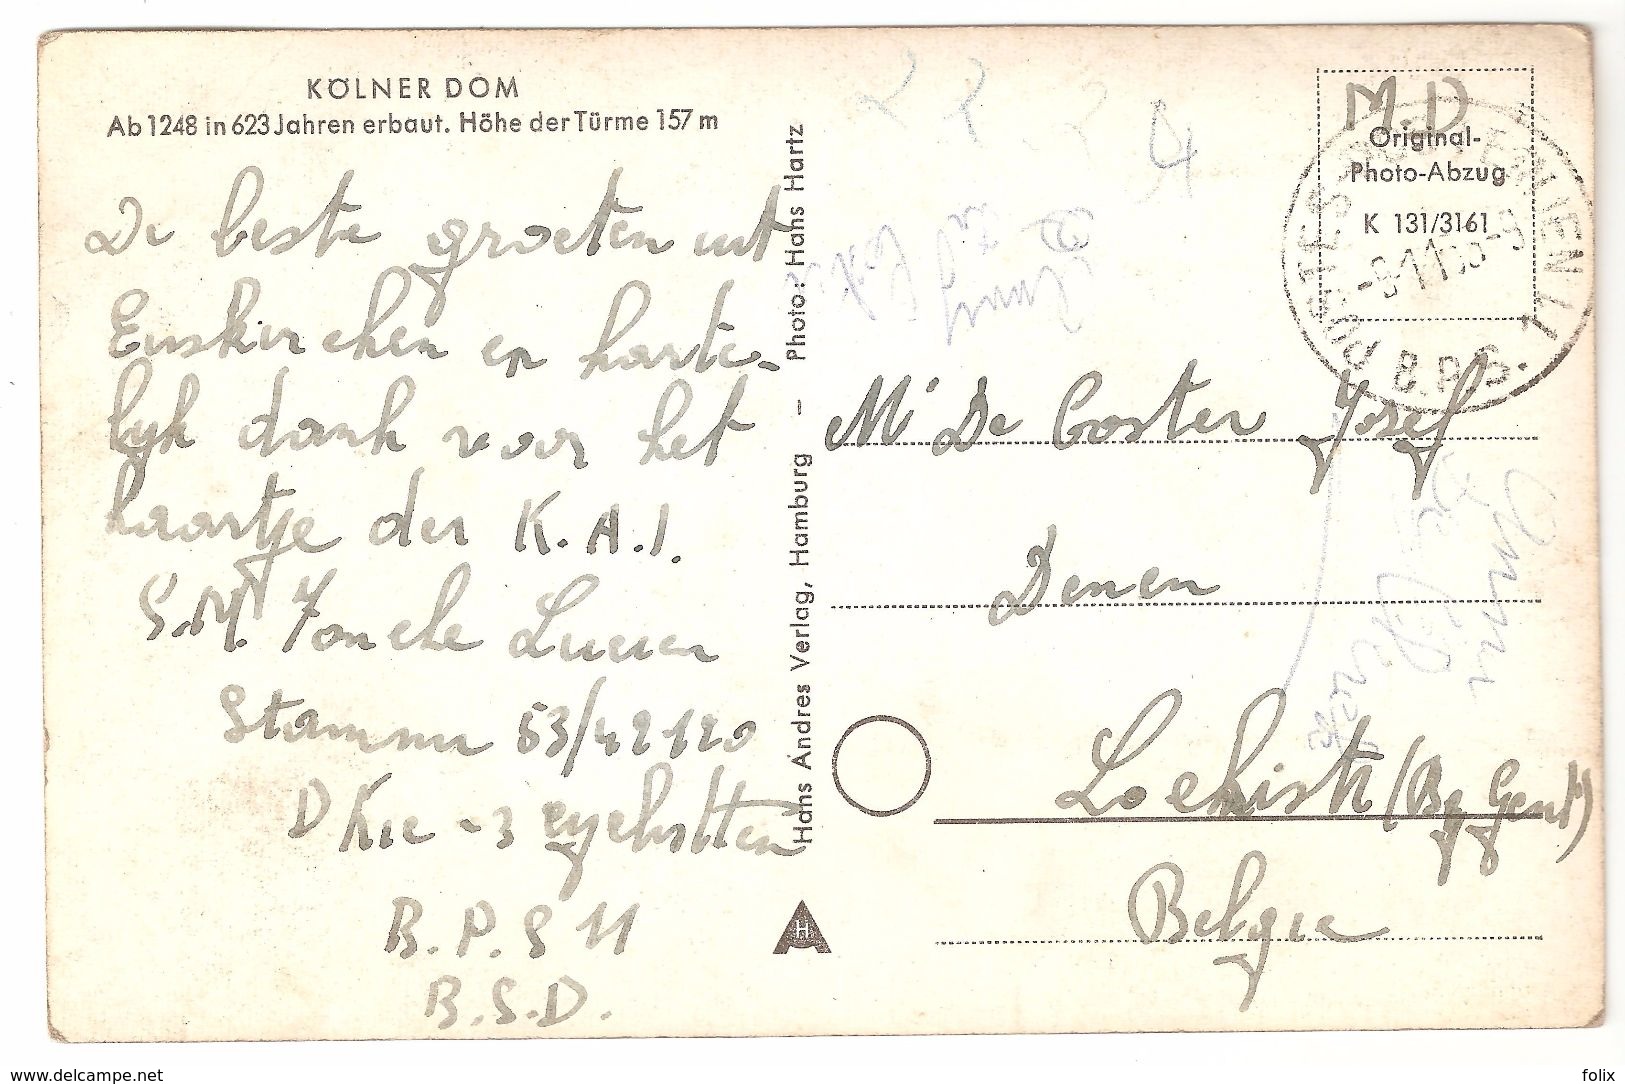 KÖLNER DOM
Ab 1248 in 623 Jahren erbaut. Höhe der Türme 157 m
De beste groeten uit
Euskirchen en harte-
lyk dank voor het
kaartje der K.A.J.
S.M. Foncke Lucien
Stamnr 53/42120
D Kie - 3 eyehotten
B.P.S 11
B.S.D.
Hans Andres Verlag, Hamburg – Photo: Hans Hartz
M.D
Original-
Photo-Abzug
K 131/3161
POSTES-POSTERIJEN
B.P.S. 11
Mr De Coster Jozef
Denen
Lochristi (By Gent)
Belgie
www.delcampe.net
folix